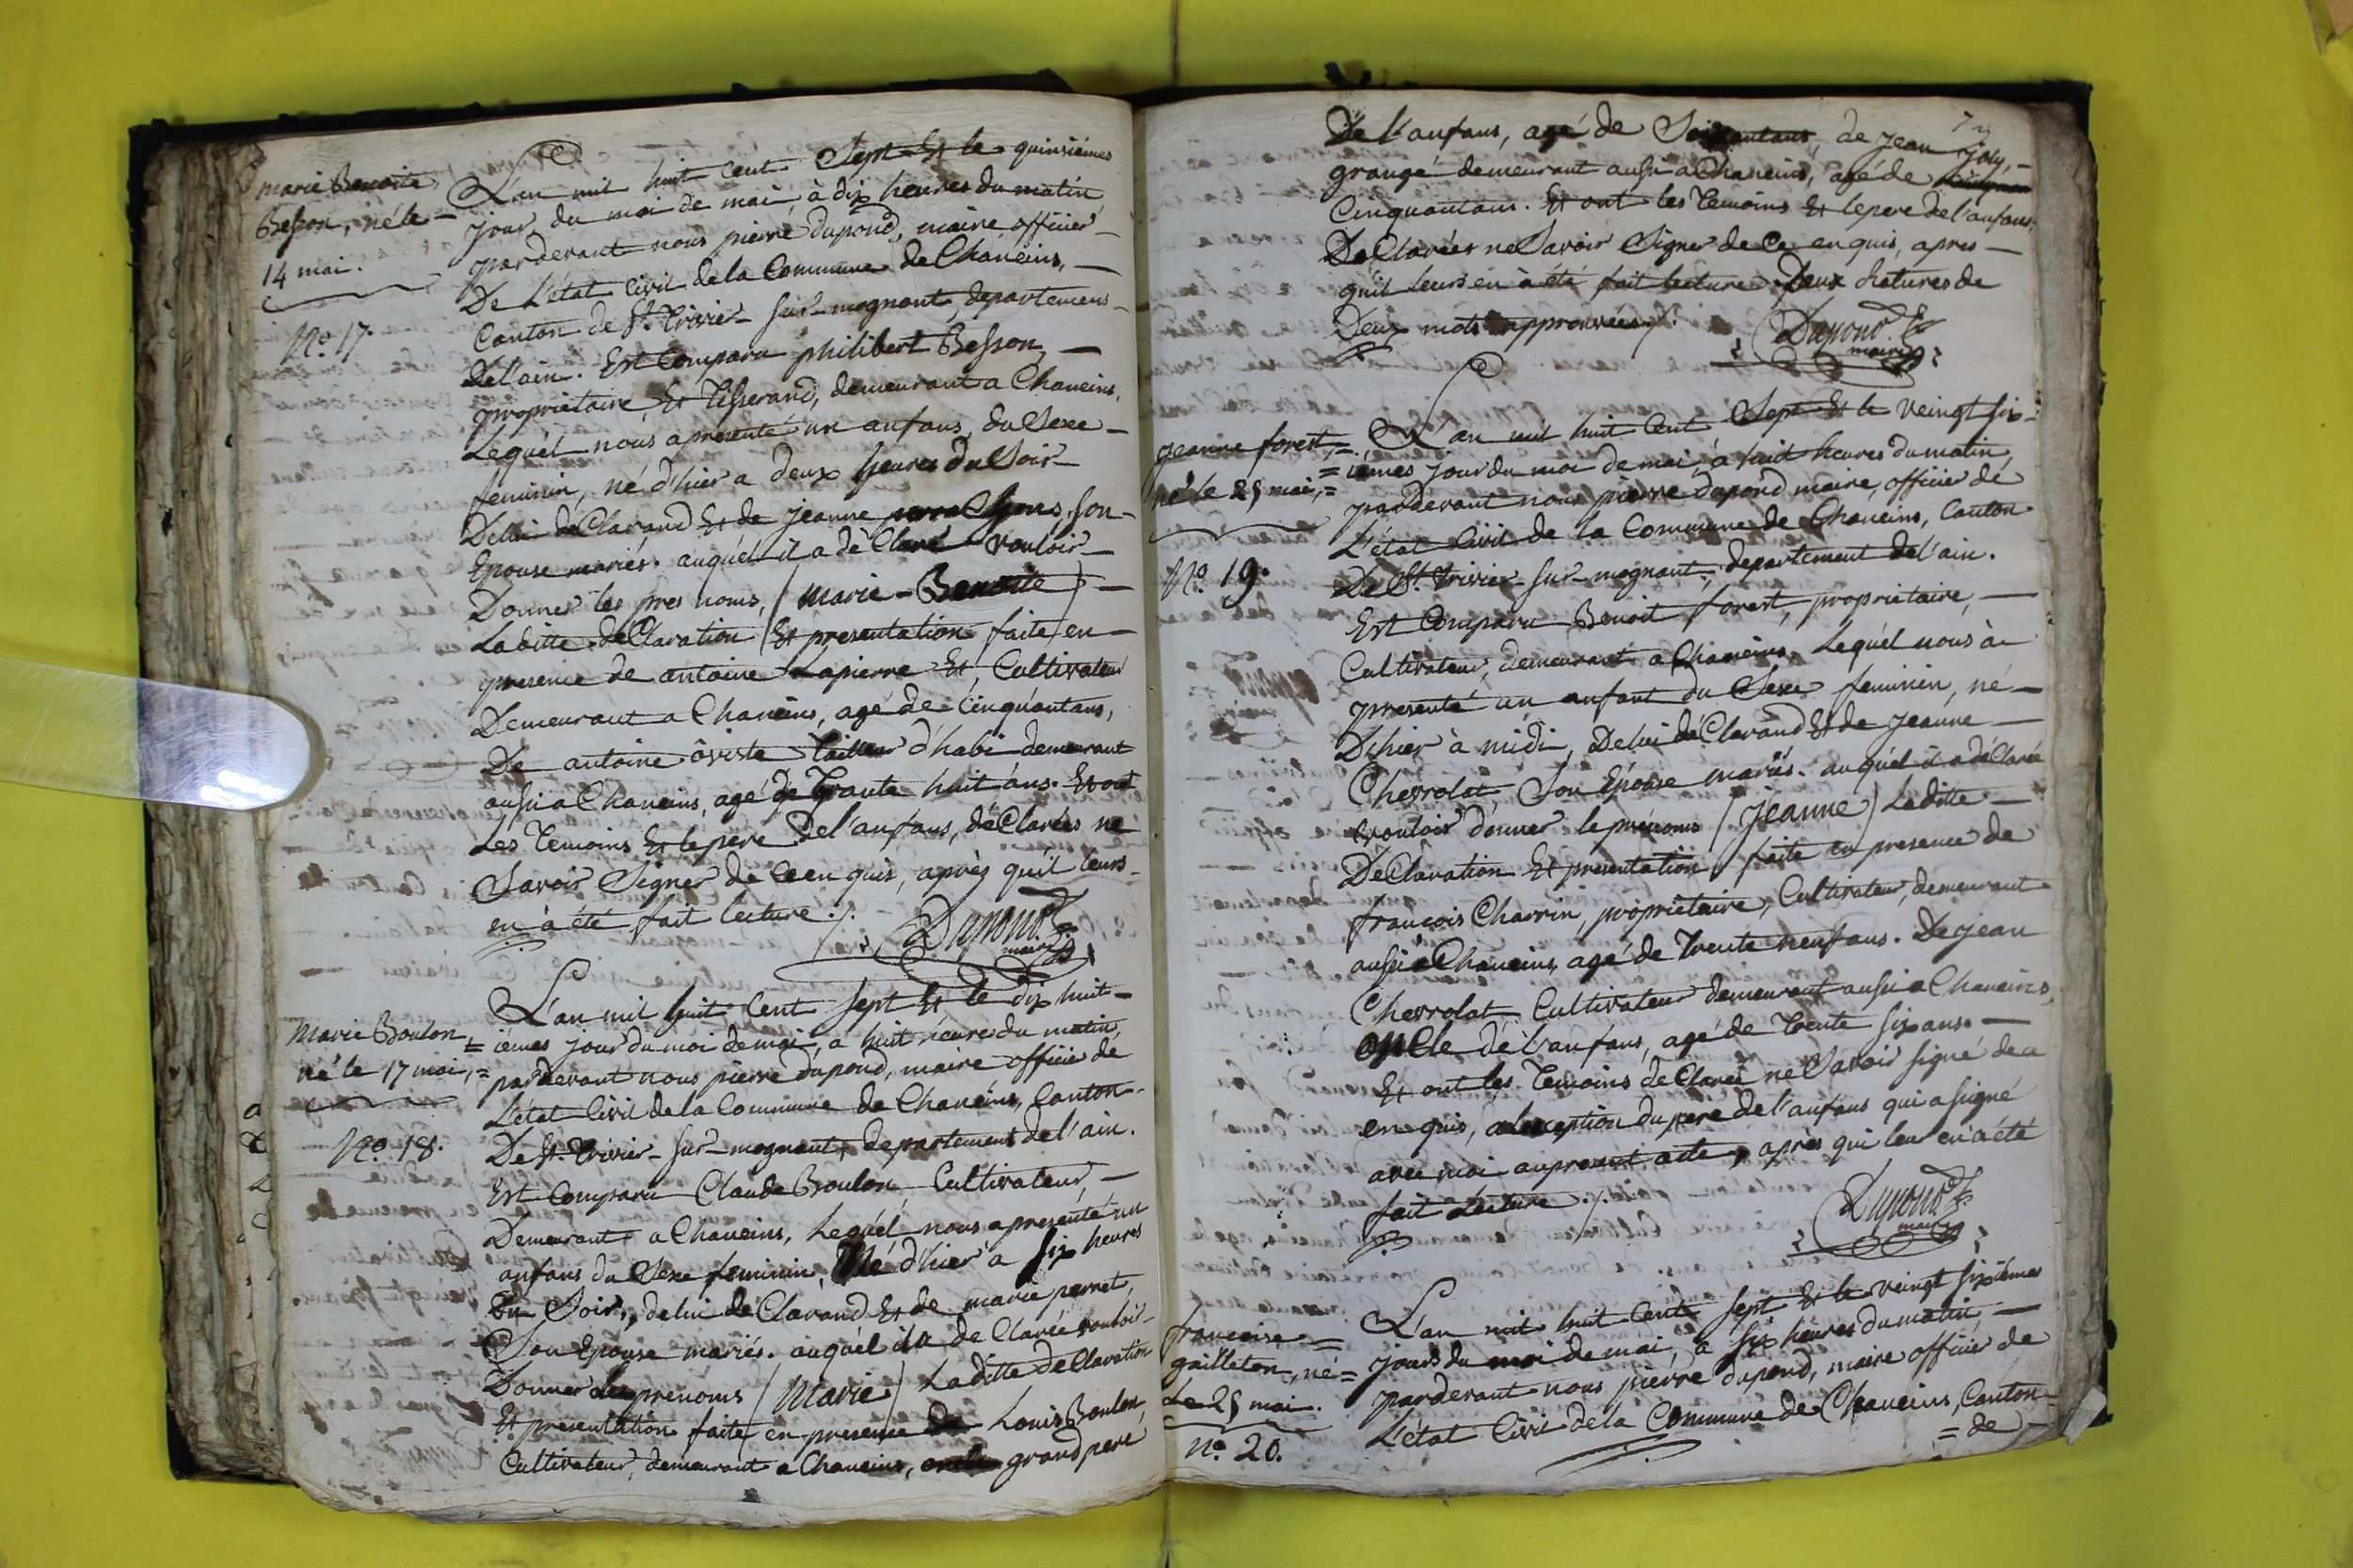 marie Benoite
Besson, né le
14 mai.
No. 17.
L'an mil huit cent Sept Et le quinsièmes
jour du moi de mai, à dix heures du matin
parderant nous pierre dupond, maire officier
De L'état Civil de la Commune de Chaneins,
Canton de St. Trivier sur mognant, departement
Delain. Est Comparu philibert Besson,
proprietaire Et Tisserand, demeurant a Chaneins,
Lequél nous apresenté un anfans, du Sexe
feminin, né d'hier a deux heures du Soir
Delui déClarand Et de jeanne son
Epouse mariés. auquél il a déClaré vouloir
Donner les pres noms, (marie-Benoite)
Laditte déClaration Et presentation faite en
presence de antoine Lapierre Et, Cultivateur
Demeurant a Chaneins, agé de Cinquantans,
De antoine oviste tailleur d'habi demeurant
aussi a Chaneins, agé de Trante huit ans. Et ont
Les Temoins Et lepere Del'anfans, déClarées ne
Savoir Signer de Ce en quis, après qu'il leurs
en à été fait lecture ./.
Dupond
maire
Marie Boulon,
né le 17 mai,=
No. 18.
L'an mil huit Cent sept Et le dix huit
=iémes jour du moi de mai, a huit heures du matin,
parderant nous pierre dupond, maire officier de
L'état Civil de la Commune de Chaneins, Canton
De St. Trivier sur mognant, departement de l'ain.
Est Comparu Claude Boulon, Cultivateur,
Demeurant a Chaneins, Lequél nous apresenté un
anfans du Sexe feminin, Né d'hier a six heures
Du Soir, delui deClarand Et de marie perret,
Son Epouse mariés. auquél il a de Clarée vouloir
Donner les prenoms (Marie) Laditte deClaration
Et presentation faite en presence de Louis Boulon,
Cultivateur, demeurant a Chaneins, grand pere
De l'anfans, agé de Soixantans, de jean joly,
grangé demeurant aussi a Chaneins, agé de
Cinquantans. Et ont les Temoins Et lepere de l'anfans
DeClarées ne Savoir Signer de Ce en quis, apres
quil leurs en à été fait lecture. Deux Ratures de
Deux mots approuvées./.
Dupond
maire
jeanne forest,=
né le 25 mai,=
No. 19.
L'an mil huit Cent Sept Et le veingt six-
=iémes jour du moi de mai, à huit heures du matin,
parderant nous pierre dupond maire, officier de
L'état Civil de la Commune de Chaneins, Canton
De St. Trivier sur mognant, departement de l'ain.
Est Comparu Benoit forest, proprietaire,
Cultivateur, demeurant a Chaneins, Lequél nous à
presenté un anfant du Sexe feminin, né
D'hier à midi, Delui déClarand Et de jeanne
Chevrolat, Son Epouse mariés. auquél il a déClaré
vouloir donner le prenoms (jeanne) Laditte
DéClaration Et presentation faite en presence de
francois Charrin, propriétaire, Cultivateur, demeurant
aussi a Chaneins, agé de Trente neuf ans. De jean
Chevrolat Cultivateur demeurant aussi a Chaneins,
onCle dé l'anfans, agé de Trente six ans.
Et ont les Temoins deClaréé ne Savoir signé de ce
en quis, a lexception du pere de l'anfans qui a signé
avec moi au present acte, après qui leur en'a été
fait Lecture ./.
Dupond
maire
francoise=
gailleton, né=
Le 25 mai.
no. 20.
L'an mil huit Cent sept Et le veingt sixiémes
jours du moi de mai, a six heures du matin,
parderant nous pierre dupond, maire officier de
L'état Civil de la Commune de Chaneins, Canton
=de